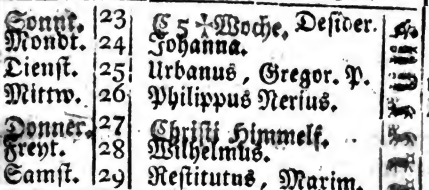 Sonnt. 23 C 5 ☩ Woche, Desider.
Mondt. 24 Johanna.
Dienst. 25 Urbanus, Gregor. P.
Mittw. 26 Philippus Nerius.
Donner. 27 Christi Himmelf.
Freyt. 28 Wilhelmus.
Samst. 29 Restitutus, Maxim.